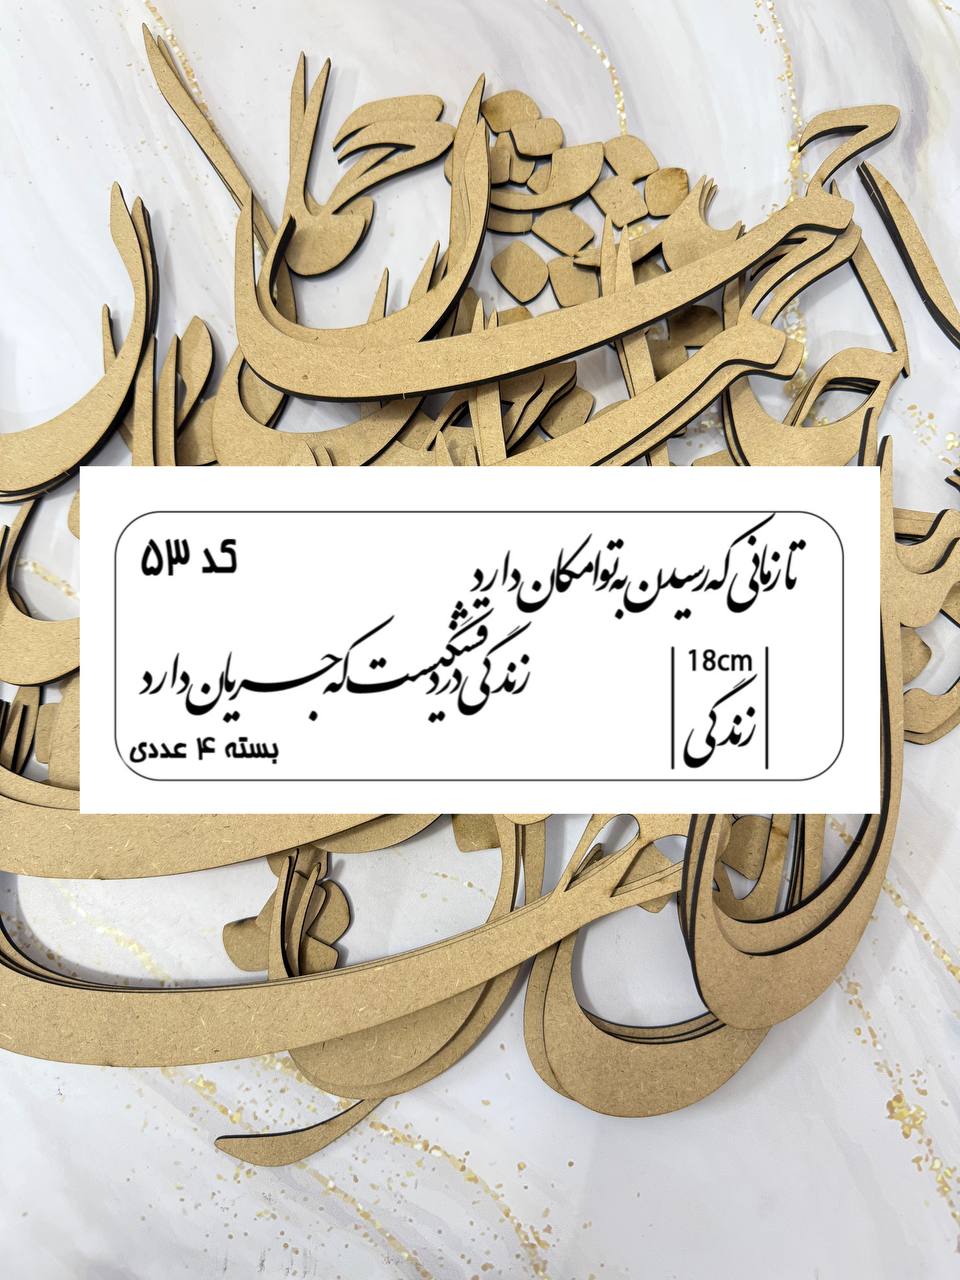 کد ۵۳
تا زمانی که رسیدن به تو امکان دارد
زندگی درد قشنگیست که جریان دارد
18cm
زندگی
بسته ۴ عددی